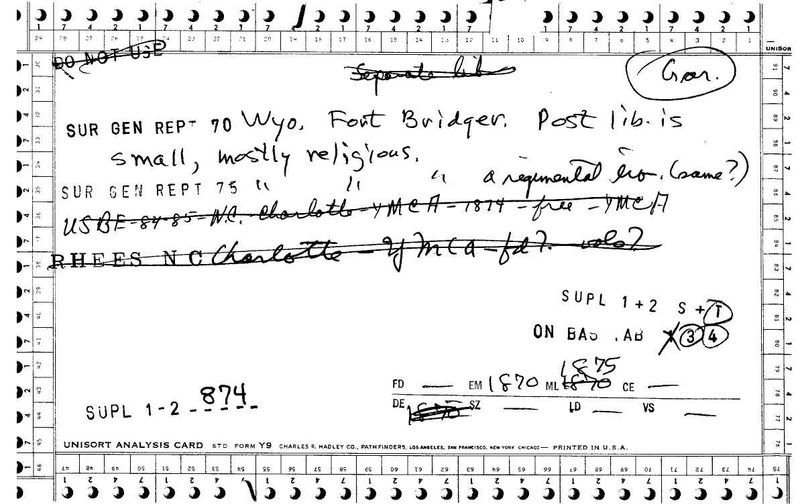 DO NOT USE
Separate lib
Gar.
SUR GEN REPT 70 Wyo. Fort Bridger. Post lib. is
small, mostly religious.
SUR GEN REPT 75 " " " a regimental lib. (same?)
USBE-84-85-N.C. Charlotte-YMCA-1874-free-YMCA
RHEES N C Charlotte - YMCA - fd?. vols?
SUPL 1+2 S + T
ON BAS. AB X 3 4
FD — EM 1870 ML 1875 1870 CE —
DE 1870 SZ — LD — VS —
SUPL 1-2 874
UNISORT ANALYSIS CARD STD FORM Y9 CHARLES R. HADLEY CO., PATHFINDERS, LOS ANGELES, SAN FRANCISCO, NEW YORK CHICAGO — PRINTED IN U.S.A.